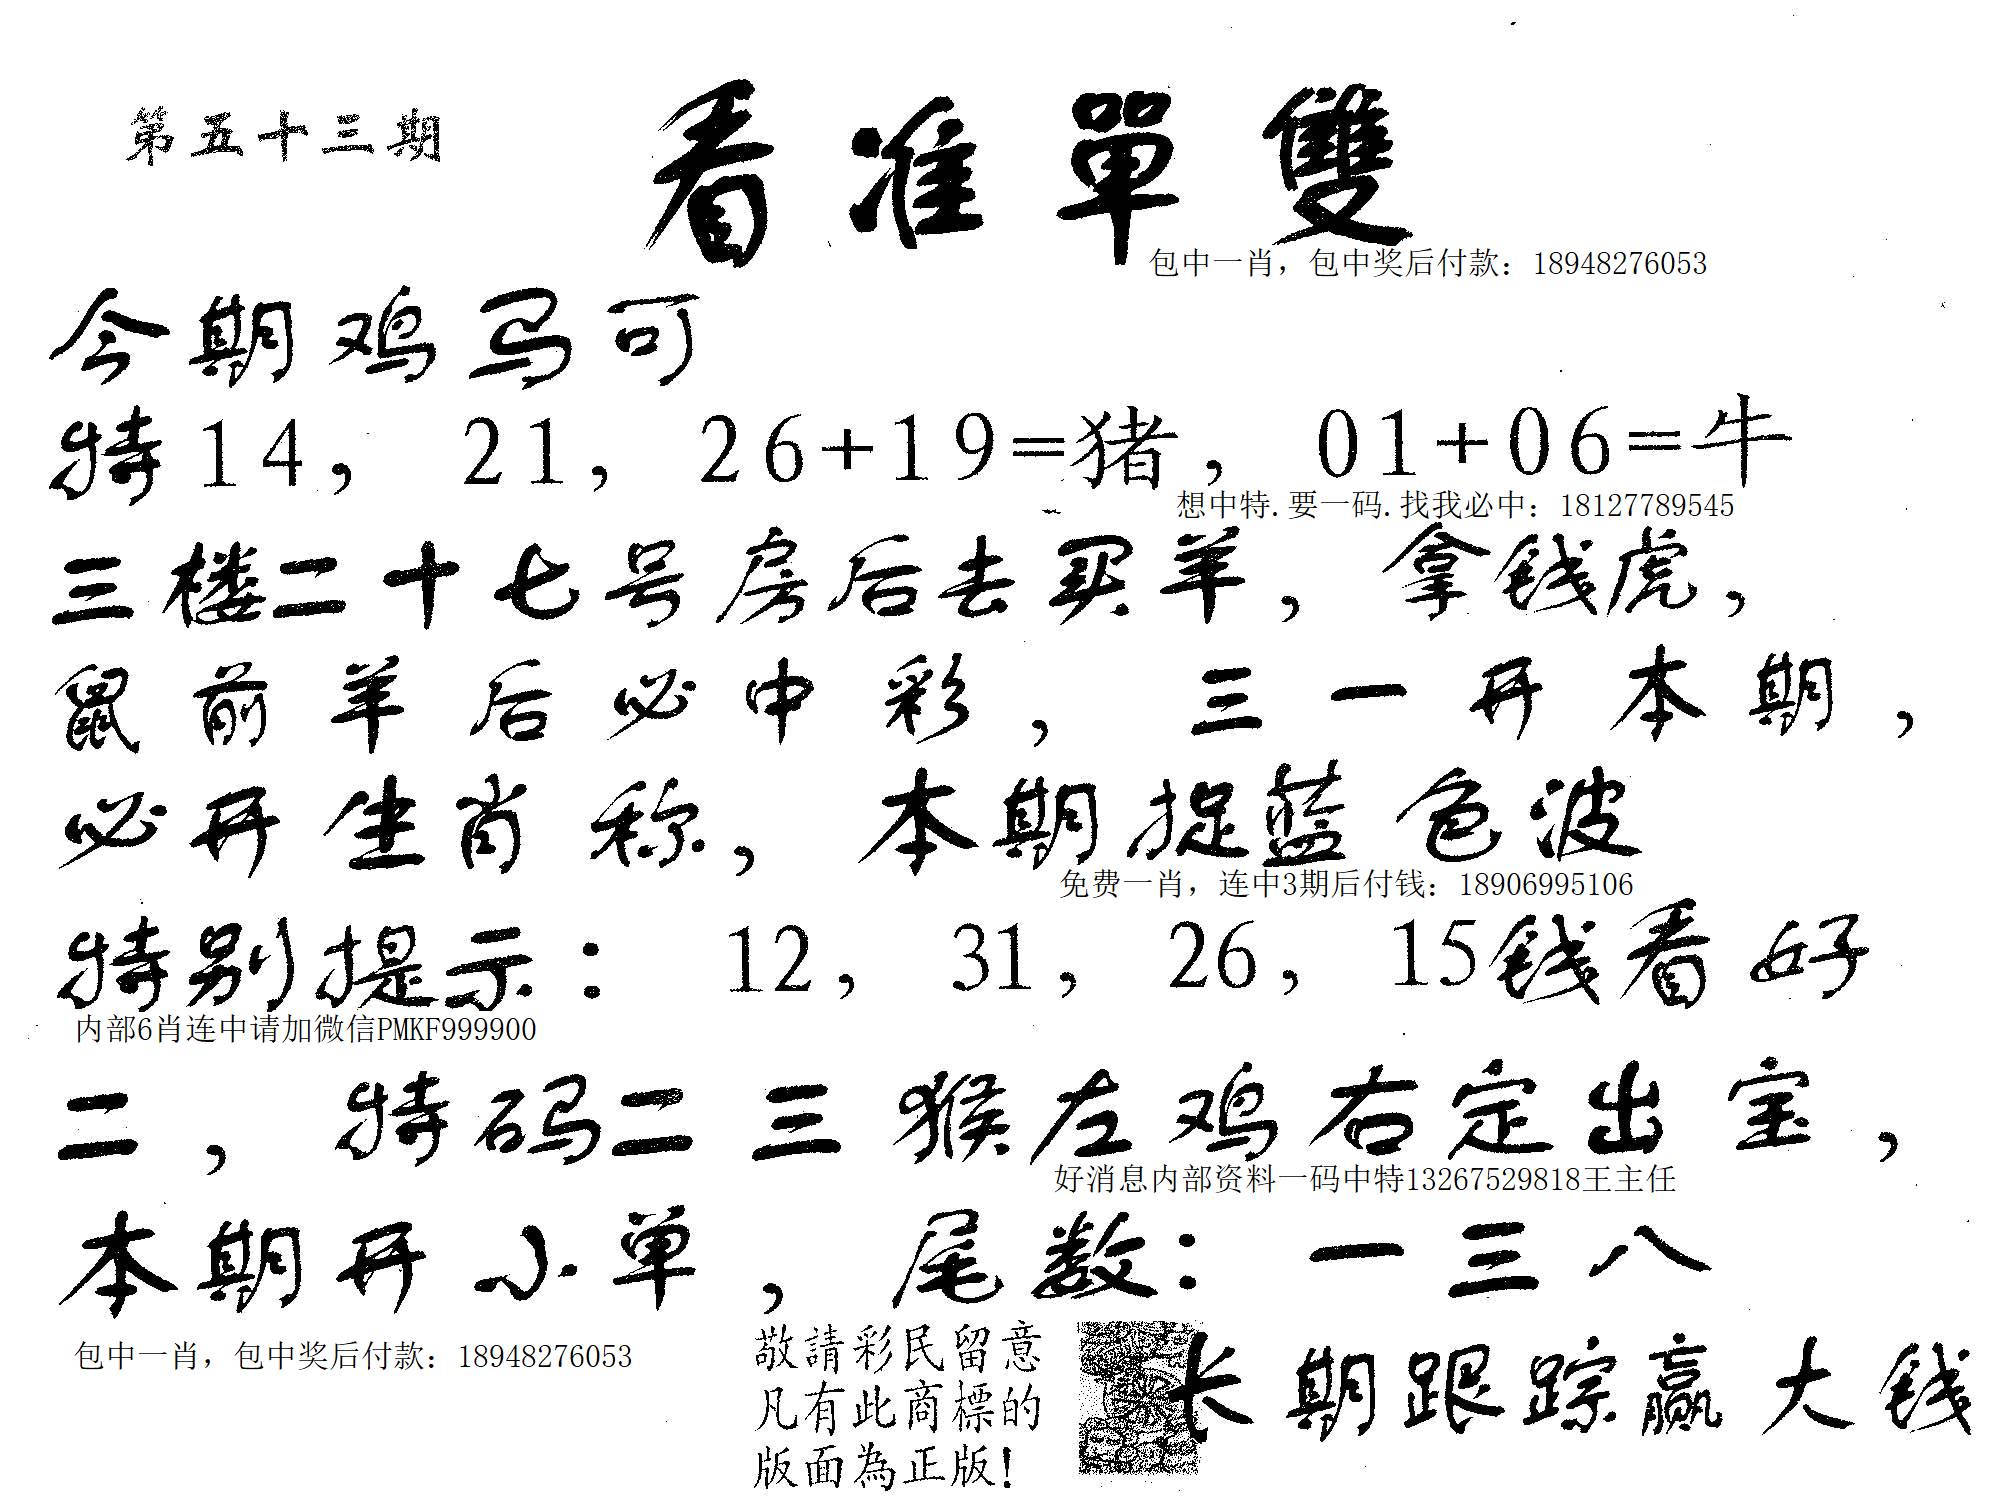 第五十三期
看准單雙
包中一肖，包中奖后付款：18948276053
今期鸡马可
特14，21，26+19=猪，01+06=牛
想中特.要一码.找我必中：18127789545
三楼二十七号房后去买羊，拿钱虎，
鼠前羊后必中彩，三一开本期，
必开坐肖称，本期捉蓝色波
免费一肖，连中3期后付钱：18906995106
特别提示：12，31，26，15钱看好
内部6肖连中请加微信PMKF999900
二，特码二三猴左鸡右定出宝，
好消息内部资料一码中特13267529818王主任
本期开小单，尾数：一三八
包中一肖，包中奖后付款：18948276053
敬請彩民留意
凡有此商標的
版面為正版！
长期跟踪赢大钱